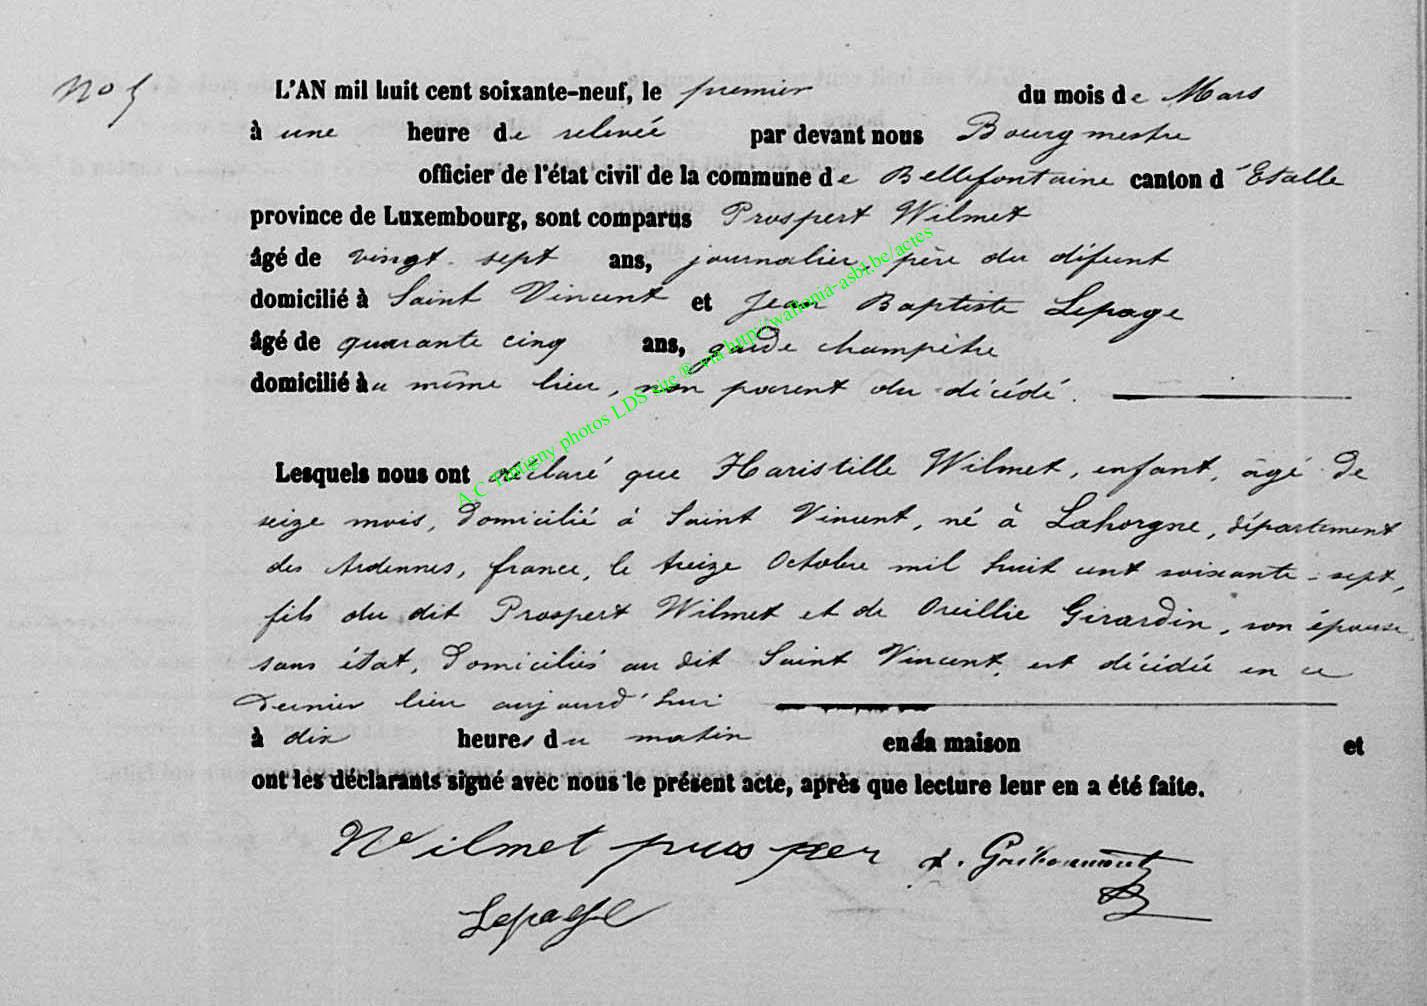 No 5
L'AN mil huit cent soixante-neuf, le premier du mois de Mars
à une heure de relevée par devant nous Bourgmestre
officier de l'état civil de la commune de Bellefontaine canton d'Etalle
province de Luxembourg, sont comparus Prospert Wilmet
âgé de vingt-sept ans, journalier, père du défunt
domicilié à Saint Vincent et Jean Baptiste Lepage
âgé de quarante cinq ans, garde champêtre
domicilié au même lieu, non parent du décédé.
Lesquels nous ont déclaré que Haristille Wilmet, enfant, âgé de
seize mois, domicilié à Saint Vincent, né à Lahorgne, département
des Ardennes, france, le treize Octobre mil huit cent soixante-sept,
fils du dit Prospert Wilmet et de Oreillie Girardin, son épouse
sans état, domiciliés au dit Saint Vincent, est décédé en ce
dernier lieu aujourd'hui
à dix heures du matin en sa maison et
ont les déclarants signé avec nous le présent acte, après que lecture leur en a été faite.
Wilmet prosper
Lepage
A.C Tintigny photos LDS mc ® via http://wallonia-asbl.be/actes